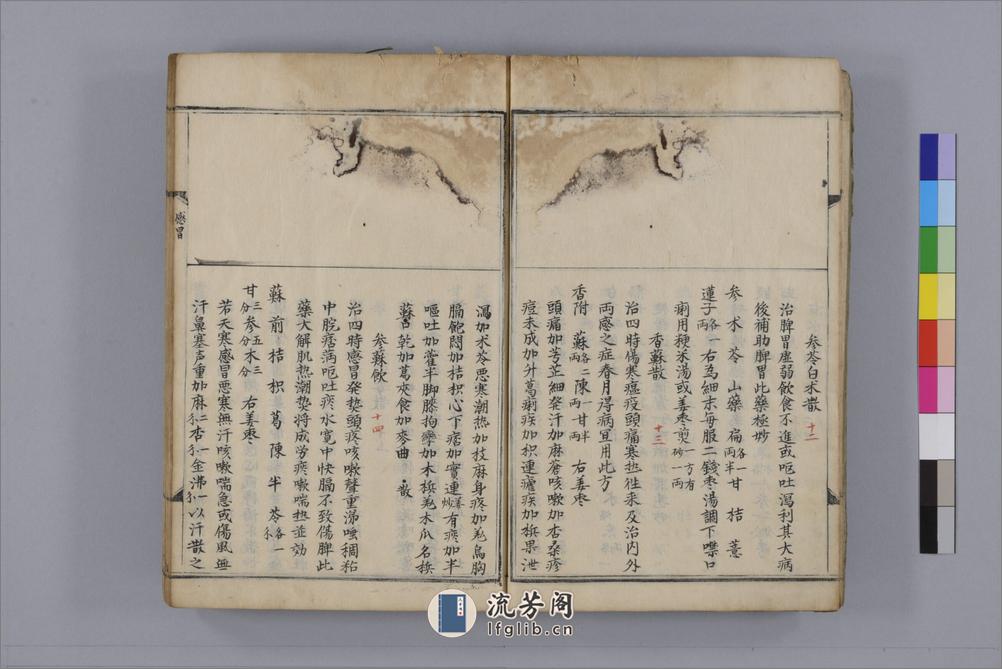 參苓白朮散 十二
治脾胃虛弱飲食不進或呕吐瀉利其大病
後補助脾胃此藥極妙
參 朮 苓 山藥 扁各一两半 甘 桔 薏
蓮子各一两 右為細末每服二錢枣湯調下噤口
痢用粳米湯或姜枣煎一方有砂一两
香蘇散 十三
治四時傷寒瘟疫頭痛寒热徃来及治内外
两感之症春月得病宜用此方
香附 蘇各二两 陳一两 甘半两 右姜枣
頭痛加芎芷細發汗加麻蒼咳嗽加杏桑疹
痘未成加升葛痢疾加枳連瘧疾加梹果泄
瀉加朮苓悪寒潮热加枝麻身疼加羌烏胸
膈飽悶加桔枳心下痞加實連有痰加半
嘔吐加藿半脚膝拘攣加木梹羌木瓜名梹
蘇古乾加葛夾食加麥曲散
參蘇飲 十四
治四時感冒発热頭疼咳嗽聲重涕唾稠粘
中脘痞痛呕吐痰水寛中快膈不致傷脾此
藥大解肌热潮热将成労疾嗽喘热並効
蘇 前 桔 枳 葛 陳 半 苓各一
甘三分 參五分 木三分 右姜枣
若天寒感冒悪寒無汗咳嗽喘急或傷風無
汗鼻塞声重加麻二杏一金沸一以汗散之
感冒
流芳阁
lfglib.cn